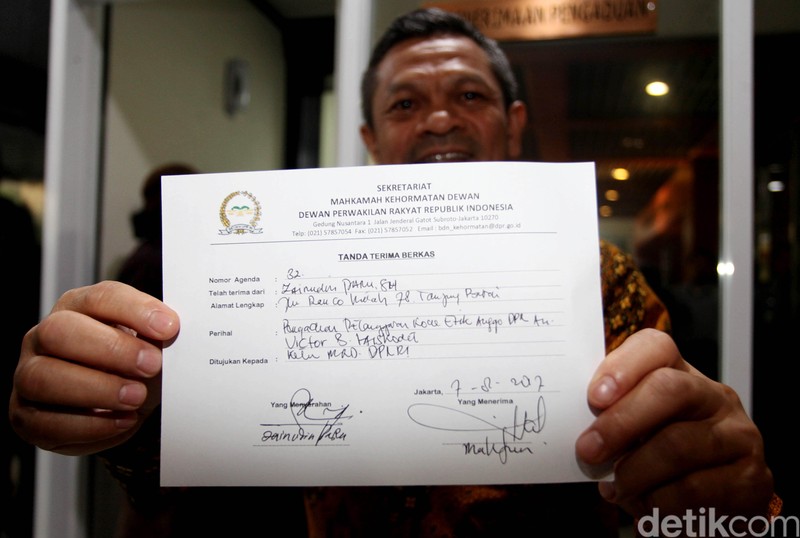 PENERIMAAN PENGADUAN
SEKRETARIAT
MAHKAMAH KEHORMATAN DEWAN
DEWAN PERWAKILAN RAKYAT REPUBLIK INDONESIA
Gedung Nusantara 1 Jalan Jenderal Gatot Subroto-Jakarta 10270
Telp: (021) 57857054 Fax: (021) 57857052 Email : bdn_kehormatan@dpr.go.id
TANDA TERIMA BERKAS
Nomor Agenda : 32.
Telah terima dari : Zainudin PARU. SH
Alamat Lengkap : Jln Ranco Indah 78 Tanjung Barat
Perihal : Pengaduan Pelanggaran Kode Etik Anggo DPR An.
Victor B. Laiskodat
Ditujukan Kepada : Ketu MKD. DPR RI
Jakarta, 7-8-2017
Yang Menyerahkan
Yang Menerima
Zainudin Paru
detikcom